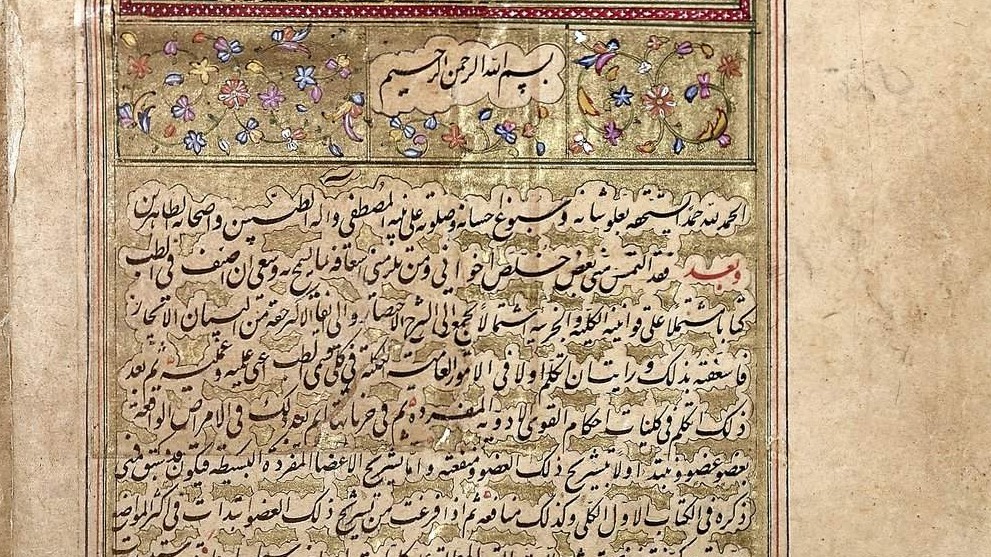 بسم الله الرحمن الرحيم
الحمد لله حمدا يستحقه بعلو شانه وسبوغ احسانه وصلوته على نبيه المصطفى واله الطيبين واصحابه الطاهرين
وبعد فقد التمس منى بعض خلص اخوانى ومن يلزمنى اسعافه بما يسمح به وسعى ان اصنف فى الطب
كتابا مشتملا على قوانينه الكلية والجزئية اشتمالا يجمع الى الشرح الاختصار والى ايفاء الاكثر حقه من البيان الايجاز
فاسعفته بذلك ورايت ان اتكلم اولا فى الامور العامة الكلية فى كلى قسمى الطب اعنى عليه وعمليه ثم بعد
ذلك اتكلم فى كليات احكام القوى الادوية المفردة ثم فى جزئياتها ثم بعد ذلك فى الامراض الواقعة
بعضو عضو ونبتدا اولا بتشريح ذلك العضو ومنفعته واما تشريح الاعضا المفردة البسيطة فيكون قد سبق منى
ذكره فى الكتاب الاول الكلى وكذلك منافعه ثم اذا فرغت من تشريح ذلك العضو ابتدات فى اكثر المواضع